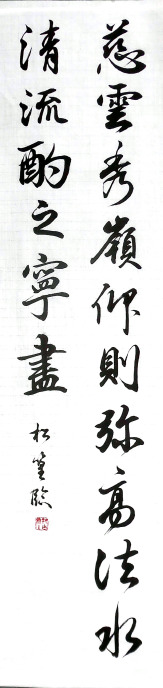 慈雲秀嶺仰則弥高法水
清流酌之寧盡
松篁臨